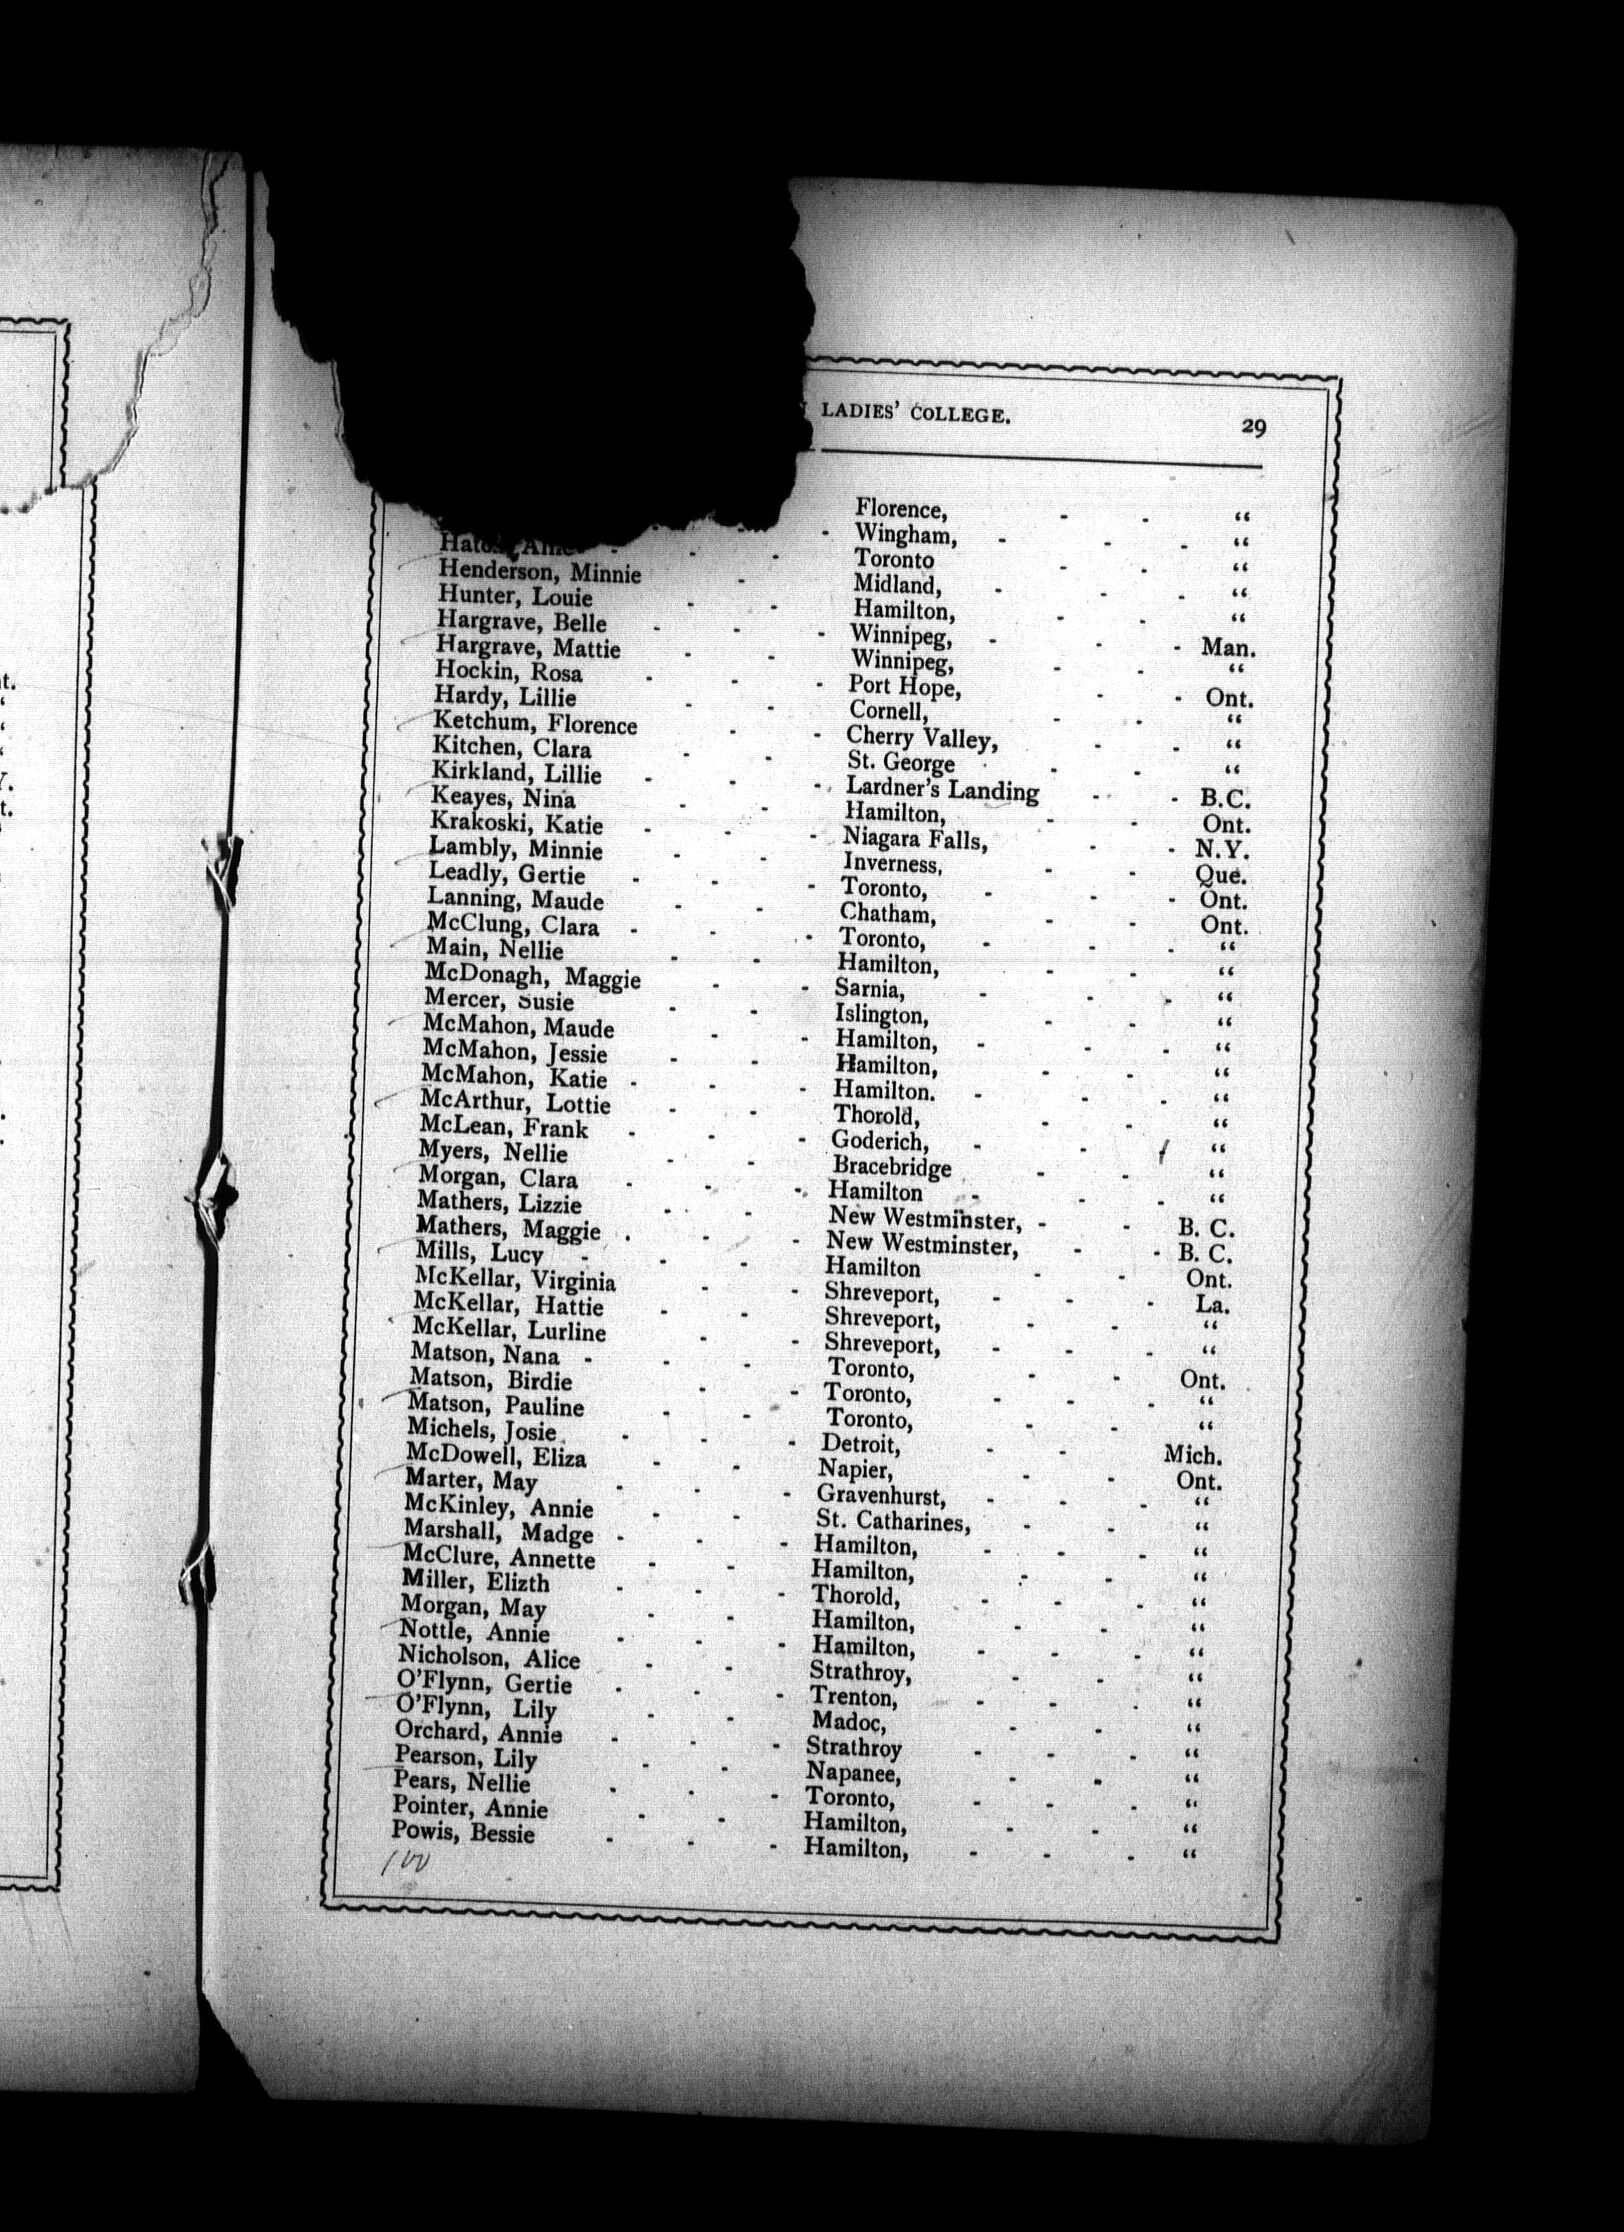 LADIES' COLLEGE. 29
Florence, “
Wingham, “
Toronto “
Henderson, Minnie Midland, “
Hunter, Louie Hamilton, “
Hargrave, Belle Winnipeg, Man.
Hargrave, Mattie Winnipeg, “
Hockin, Rosa Port Hope, Ont.
Hardy, Lillie Cornell, “
Ketchum, Florence Cherry Valley, “
Kitchen, Clara St. George “
Kirkland, Lillie Lardner's Landing B.C.
Keayes, Nina Hamilton, Ont.
Krakoski, Katie Niagara Falls, N.Y.
Lambly, Minnie Inverness, Que.
Leadly, Gertie Toronto, Ont.
Lanning, Maude Chatham, Ont.
McClung, Clara Toronto, “
Main, Nellie Hamilton, “
McDonagh, Maggie Sarnia, “
Mercer, Susie Islington, “
McMahon, Maude Hamilton, “
McMahon, Jessie Hamilton, “
McMahon, Katie Hamilton. “
McArthur, Lottie Thorold, “
McLean, Frank Goderich, “
Myers, Nellie Bracebridge “
Morgan, Clara Hamilton “
Mathers, Lizzie New Westminster, B. C.
Mathers, Maggie New Westminster, B. C.
Mills, Lucy Hamilton Ont.
McKellar, Virginia Shreveport, La.
McKellar, Hattie Shreveport, “
McKellar, Lurline Shreveport, “
Matson, Nana Toronto, Ont.
Matson, Birdie Toronto, “
Matson, Pauline Toronto, “
Michels, Josie Detroit, Mich.
McDowell, Eliza Napier, Ont.
Marter, May Gravenhurst, “
McKinley, Annie St. Catharines, “
Marshall, Madge Hamilton, “
McClure, Annette Hamilton, “
Miller, Elizth Thorold, “
Morgan, May Hamilton, “
Nottle, Annie Hamilton, “
Nicholson, Alice Strathroy, “
O'Flynn, Gertie Trenton, “
O'Flynn, Lily Madoc, “
Orchard, Annie Strathroy “
Pearson, Lily Napanee, “
Pears, Nellie Toronto, “
Pointer, Annie Hamilton, “
Powis, Bessie Hamilton, “